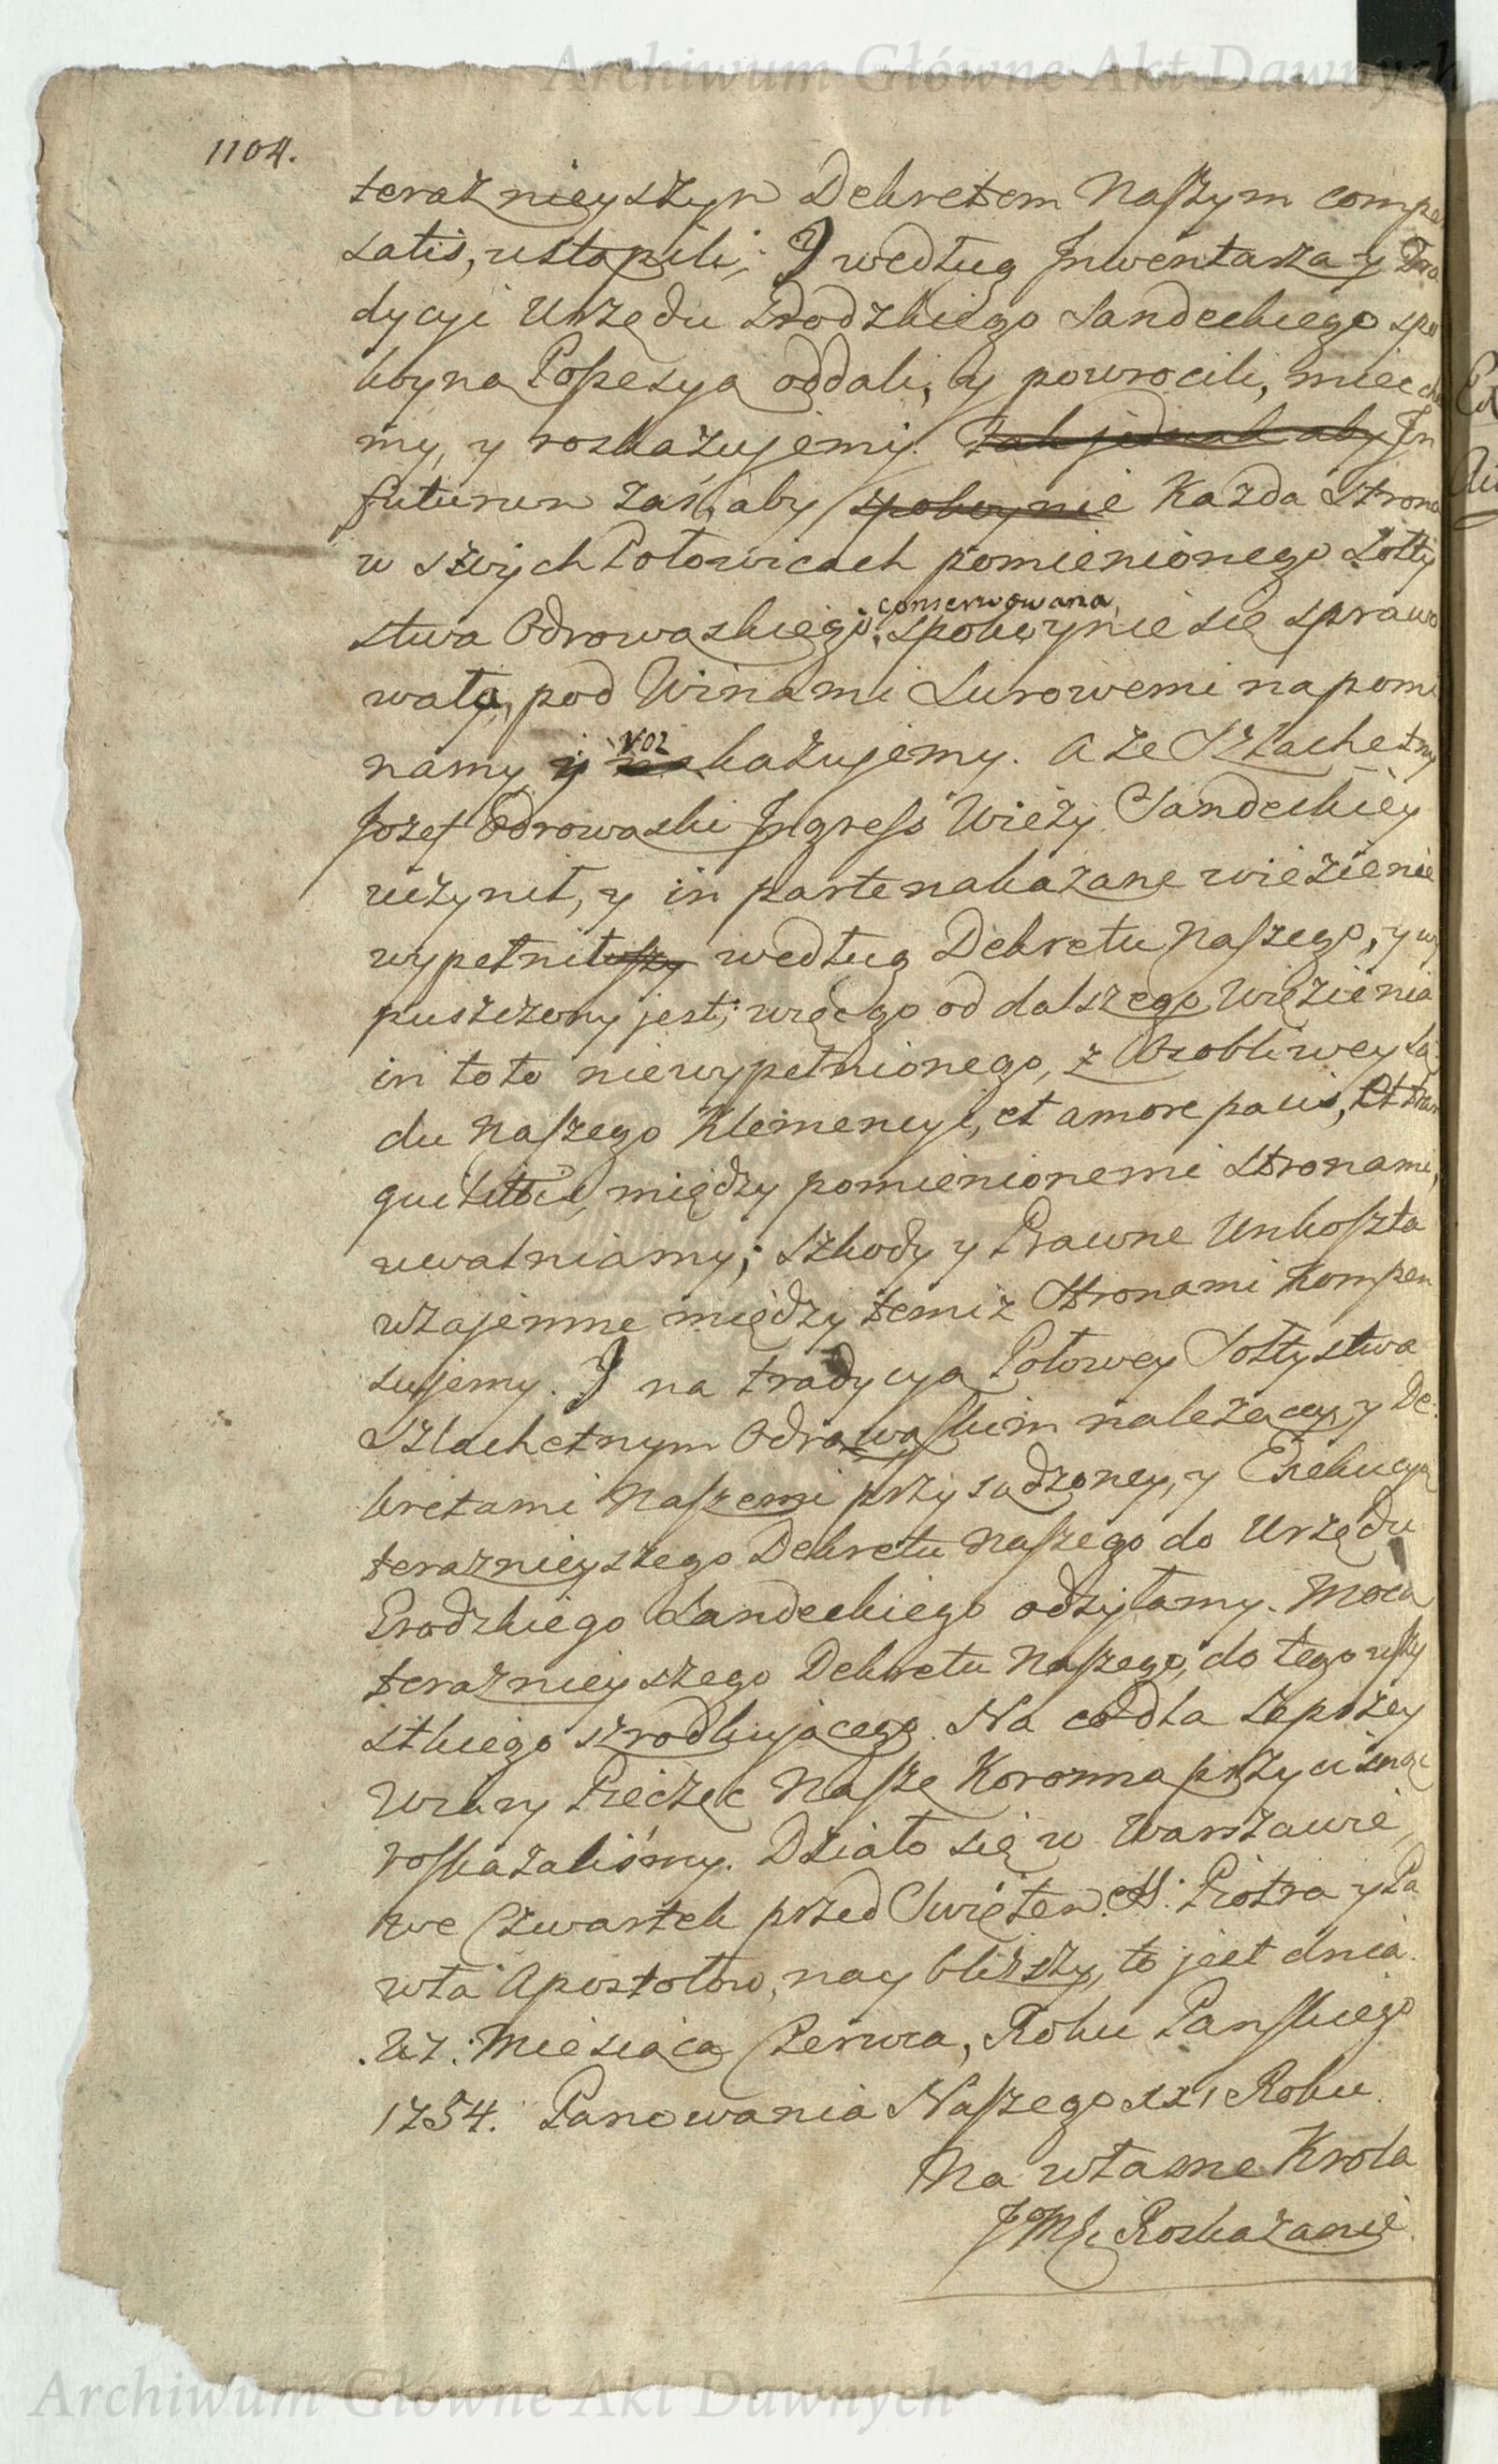 Archiwum Główne Akt Dawnych
1104.
teraznieyszym Dekretem Naszym compe
satis, ustąpili; I według Inwentarza y Tra
dycyi Urzędu Grodzkiego Sandeckiego spo
koyną Possesyą oddali, y powrocili, miec chce
my, y roskazujemy. Tak jednak aby In
futurum zaś, aby spokoynie Kazda Strona
w swych Połowicach pomienionego Sołty
stwa Odrowąskiego, conserwowana,
spokoynie się sprawo
wała, pod Winami Surowemi napomi
namy y roz
kazujemy. A ze Szlachetny
Jozef Odrowąski Ingress Wieży Sandeckiey
uczynił, y in parte nakazane więzienie
wypełniłuszy według Dekretu Naszego, y wy
puszczony jest; więc go od dalszego Więzienia
in toto niewypełnionego, z Osobliwey Są
du Naszego Klemencyi, et amore pacis, et tran
quilitatis, między pomienionemi Stronami,
uwalniamy; Szkody y Prawne Unkoszta
wzajemne między temiz Stronami kompen
sujemy. I na tradycyą Połowey Sołtystwa
Szlachetnym Odrowąskim należącey, y De
kretami Naszemi przysądzoney, y Exekucyą
teraznieyszego Dekretu Naszego do Urzędu
Grodzkiego Sandeckiego odsyłamy. Mocą
teraznieyszego Dekretu Naszego, do tego wszy
stkiego srzodkującego. Na co dla lepszey
Wiary Pieczęć Naszę Koronną przycisnąć
roskazaliśmy. Działo się w Warszawie,
we Czwartek przed Swiętem SS: Piotra y Pa
wła Apostołow, nay bliższy, to jest dnia
.27. Miesiąca Czerwca, Roku Panskiego
1754. Panowania Naszego XXI Roku.
Na własne Krola
JMCi Roskazanie
Archiwum Główne Akt Dawnych